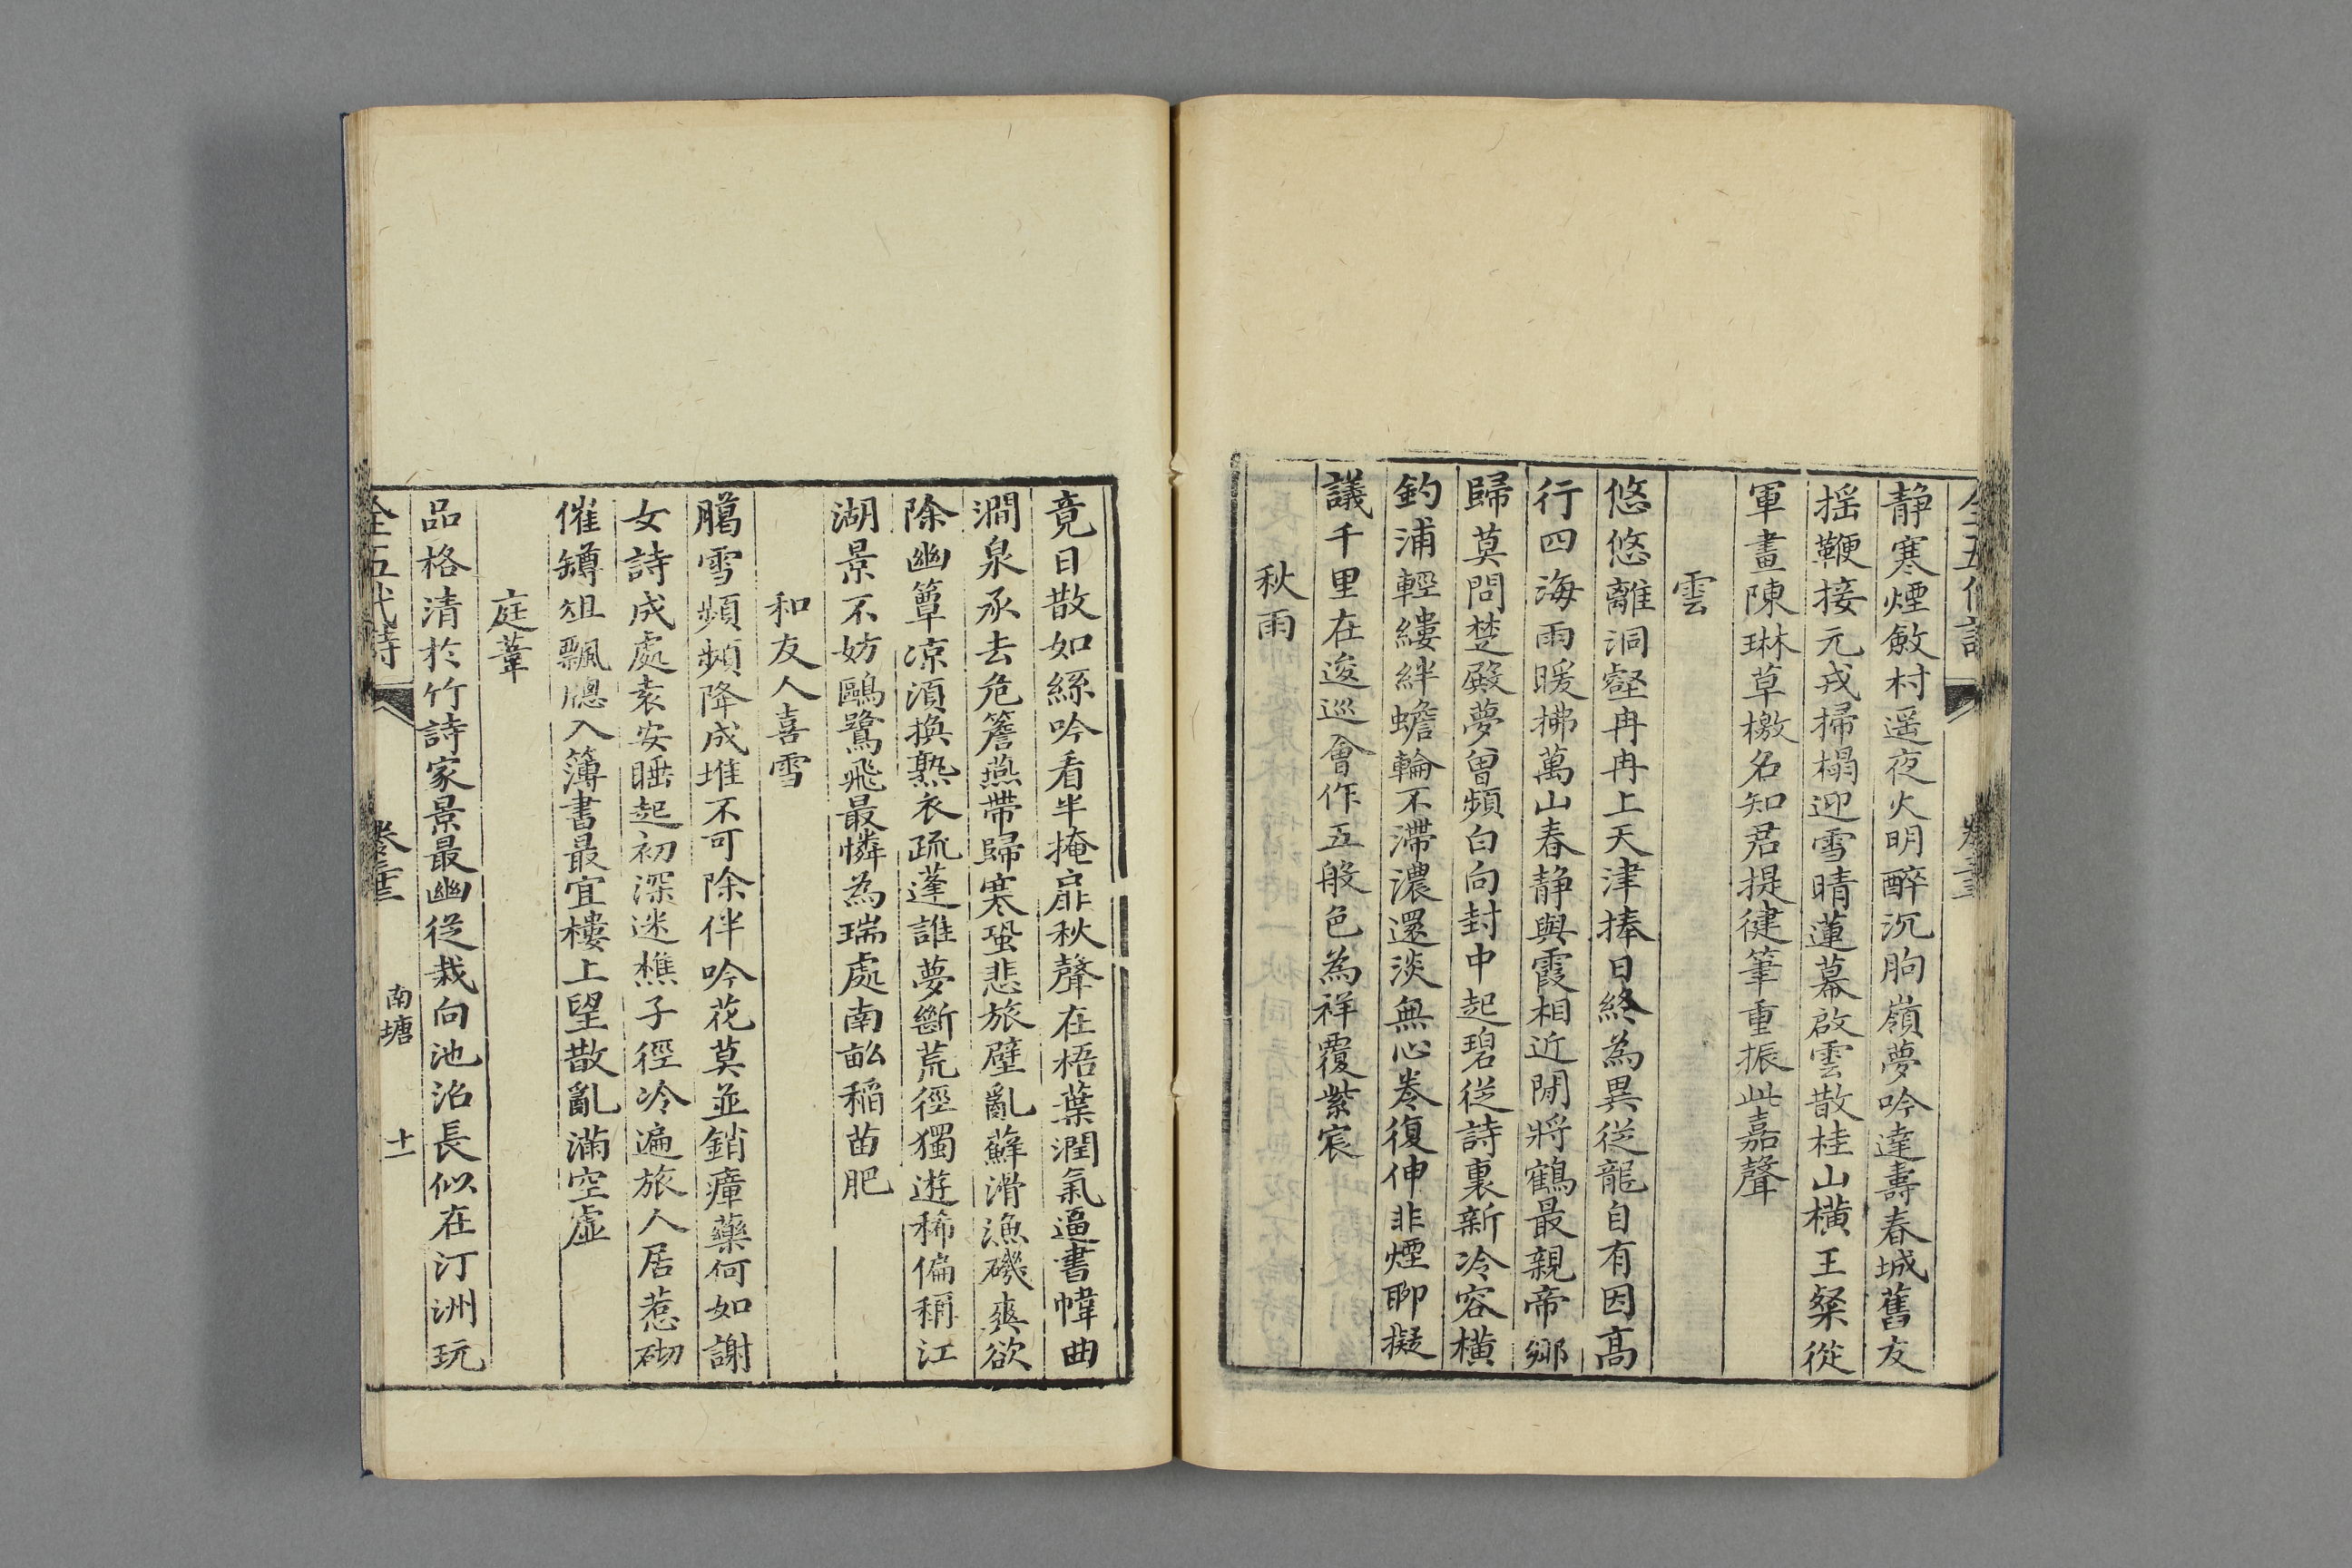 静寒煙斂村遥夜火明醉沉朐嶺夢吟達壽春城舊友
揺鞭接元戎掃榻迎雪晴蓮幕啟雲散桂山横王粲從
軍畫陳琳草檄名知君提健筆重振此嘉聲
雲
悠悠離洞壑冉冉上天津捧日終為異從龍自有因高
行四海雨暖拂萬山春静與霞相近閒將鶴最親帝鄉
歸莫問楚殿夢曾頻白向封中起碧從詩裏新冷容横
釣浦輕縷絆蟾輪不滯濃還淡無心卷復伸非煙聊擬
議千里在逡巡會作五般色為祥覆紫宸
秋雨
竟日散如絲吟看半掩扉秋聲在梧葉潤氣逼書幃曲
澗泉承去危簷燕帶歸寒蛩悲旅壁亂蘚滑漁磯爽欲
除幽簟凉須換熟衣疏蓬誰夢斷荒徑獨遊稀偏稱江
湖景不妨鷗鷺飛最憐為瑞處南畝稲苗肥
和友人喜雪
臈雪頻頻降成堆不可除伴吟花莫並銷瘴藥何如謝
女詩成處袁安睡起初深迷樵子徑冷遍旅人居惹砌
催罇俎飄牕入簿書最宜樓上望散亂滿空虚
庭葦
品格清於竹詩家景最幽從栽向池沼長似在汀洲玩
全五代詩
南塘
十一